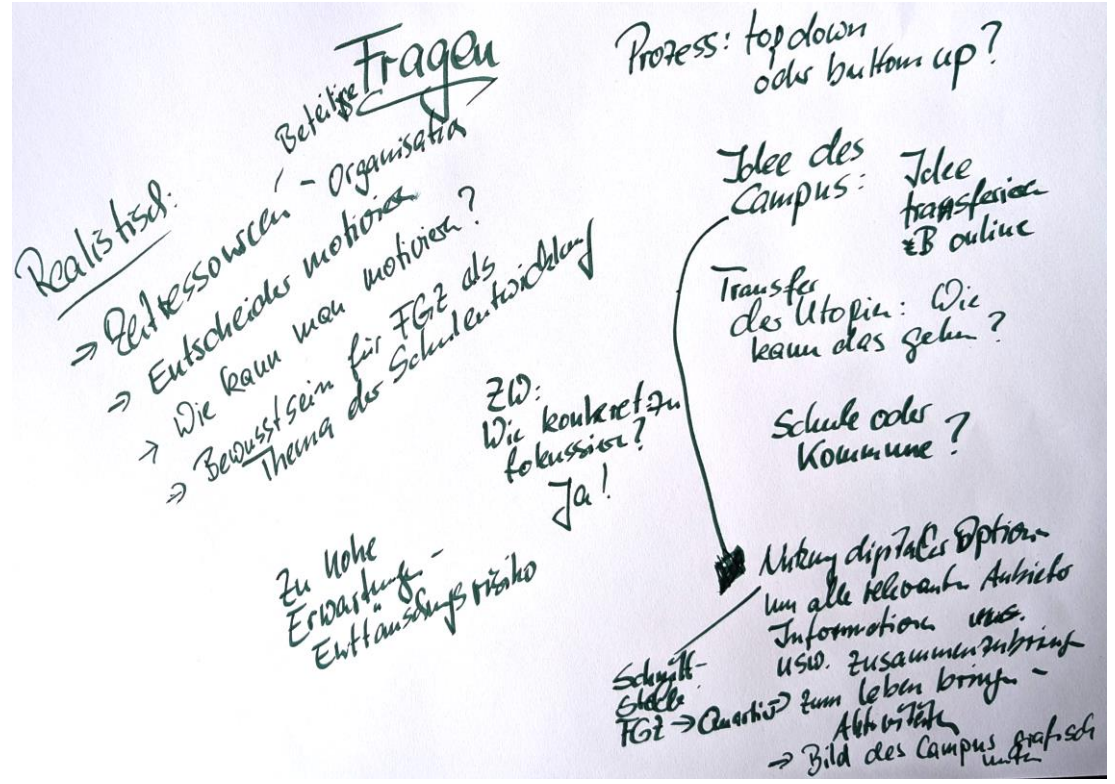 Fragen
Beteiligte
Realistisch:
→ Zeitressourcen - Organisation
→ Entscheider motivieren
→ Wie kann man motivieren?
→ Bewusstsein für FGZ als
Thema der Schulentwicklung
ZW:
Wie konkret zu
fokussieren?
Ja!
Zu hohe
Erwartungen -
Enttäuschungsrisiko
Prozess: top down
oder buttom up?
Idee des
Campus:
Idee
transferieren
zB online
Transfer
der Utopien: Wie
kann das gehen?
Schule oder
Kommune?
Nutzung digitaler Optionen
um alle relevanten Anbieter
Informationen
usw. zusammenzubringen
Schnitt-
stelle
FGZ → Quartier zum Leben bringen -
Aktivitäten
→ Bild des Campus grafisch